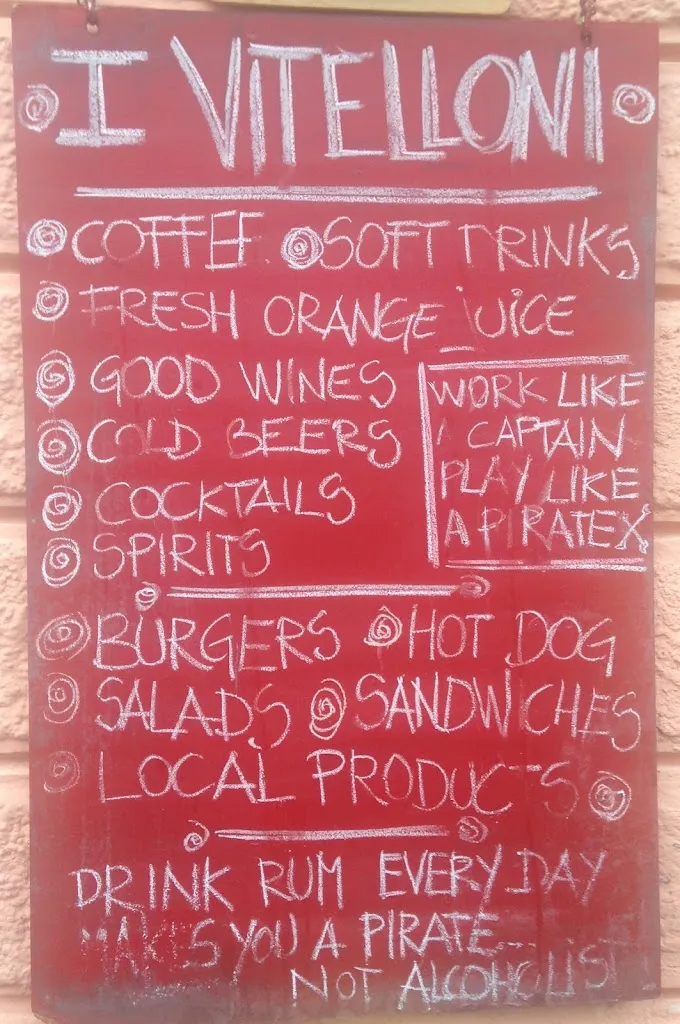 I VITELLONI
COFFEE SOFT DRINKS
FRESH ORANGE JUICE
GOOD WINES
COLD BEERS
COCKTAILS
SPIRITS
WORK LIKE
A CAPTAIN
PLAY LIKE
A PIRATE X
BURGERS HOT DOG
SALADS SANDWICHES
LOCAL PRODUCTS
DRINK RUM EVERY DAY
MAKES YOU A PIRATE...
NOT ALCOHOLIST